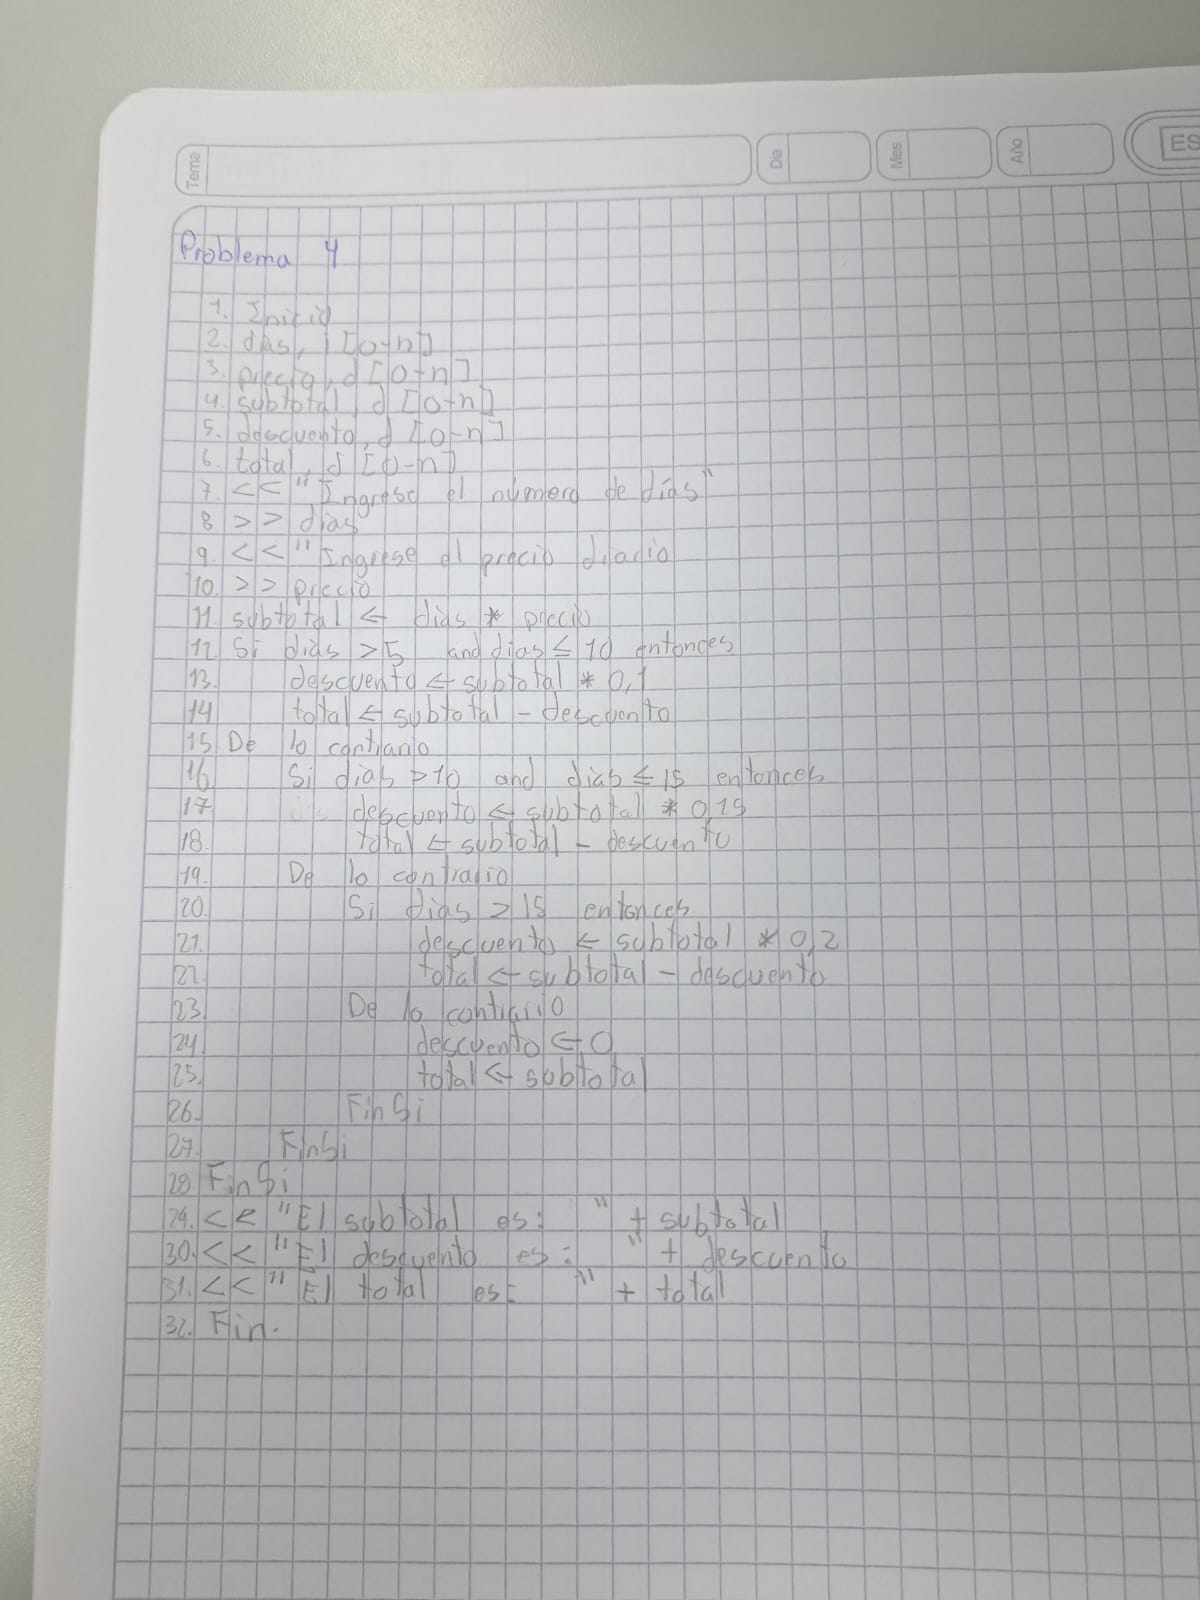 Tema
Dia
Mes
Año
ES
Problema 4
1. Inicio
2. dias, i [0-n]
3. precio, d [0-n]
4. subtotal, d [0-n]
5. descuento, d [0-n]
6. total, d [0-n]
7. << "Ingrese el número de días"
8 >> dias
9. << "Ingrese el precio diario
10. >> precio
11. subtotal ← dias * precio
12 Si dias > 5 and dias ≤ 10 entonces
13. descuento ← subtotal * 0,1
14 total ← subtotal - descuento
15 De lo contrario
16 Si dias > 10 and dias ≤ 15 entonces
17 descuento ← subtotal * 0,15
18. total ← subtotal - descuento
19. De lo contrario
20. Si dias > 15 entonces
21. descuento ← subtotal * 0,2
22. total ← subtotal - descuento
23. De lo contrario
24. descuento ← 0
25. total ← subtotal
26. FinSi
27. FinSi
28 FinSi
29. << "El subtotal es: " + subtotal
30. << "El descuento es: " + descuento
31. << "El total es: " + total
32. Fin.